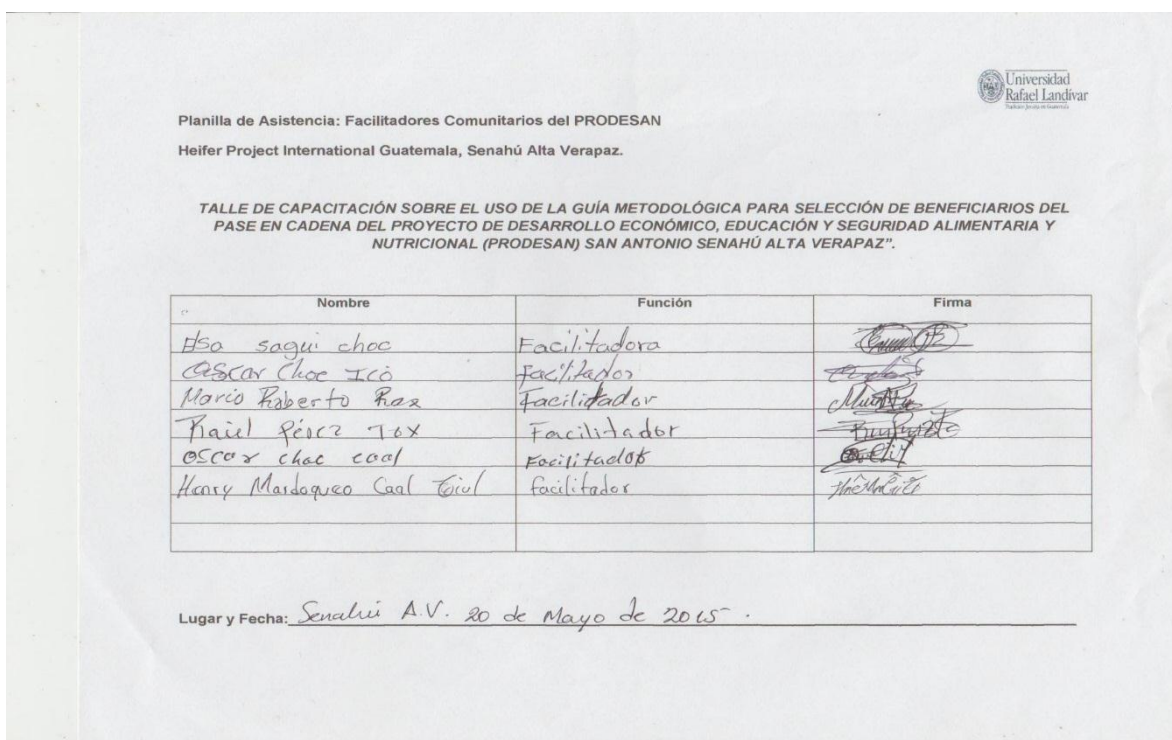 Universidad
Rafael Landívar
Planilla de Asistencia: Facilitadores Comunitarios del PRODESAN
Heifer Project International Guatemala, Senahú Alta Verapaz.
TALLE DE CAPACITACIÓN SOBRE EL USO DE LA GUÍA METODOLÓGICA PARA SELECCIÓN DE BENEFICIARIOS DEL
PASE EN CADENA DEL PROYECTO DE DESARROLLO ECONÓMICO, EDUCACIÓN Y SEGURIDAD ALIMENTARIA Y
NUTRICIONAL (PRODESAN) SAN ANTONIO SENAHÚ ALTA VERAPAZ”.
Nombre Función Firma
sagui choc Facilitadora
Oscar Choc Icó Facilitador
Mario Roberto Rax Facilitador
Pérez Tox Facilitador
Oscar choc caal Facilitador
Henry Mardoqueo Caal facilitador
Lugar y Fecha: Senahú A.V. 20 de Mayo de 2015.